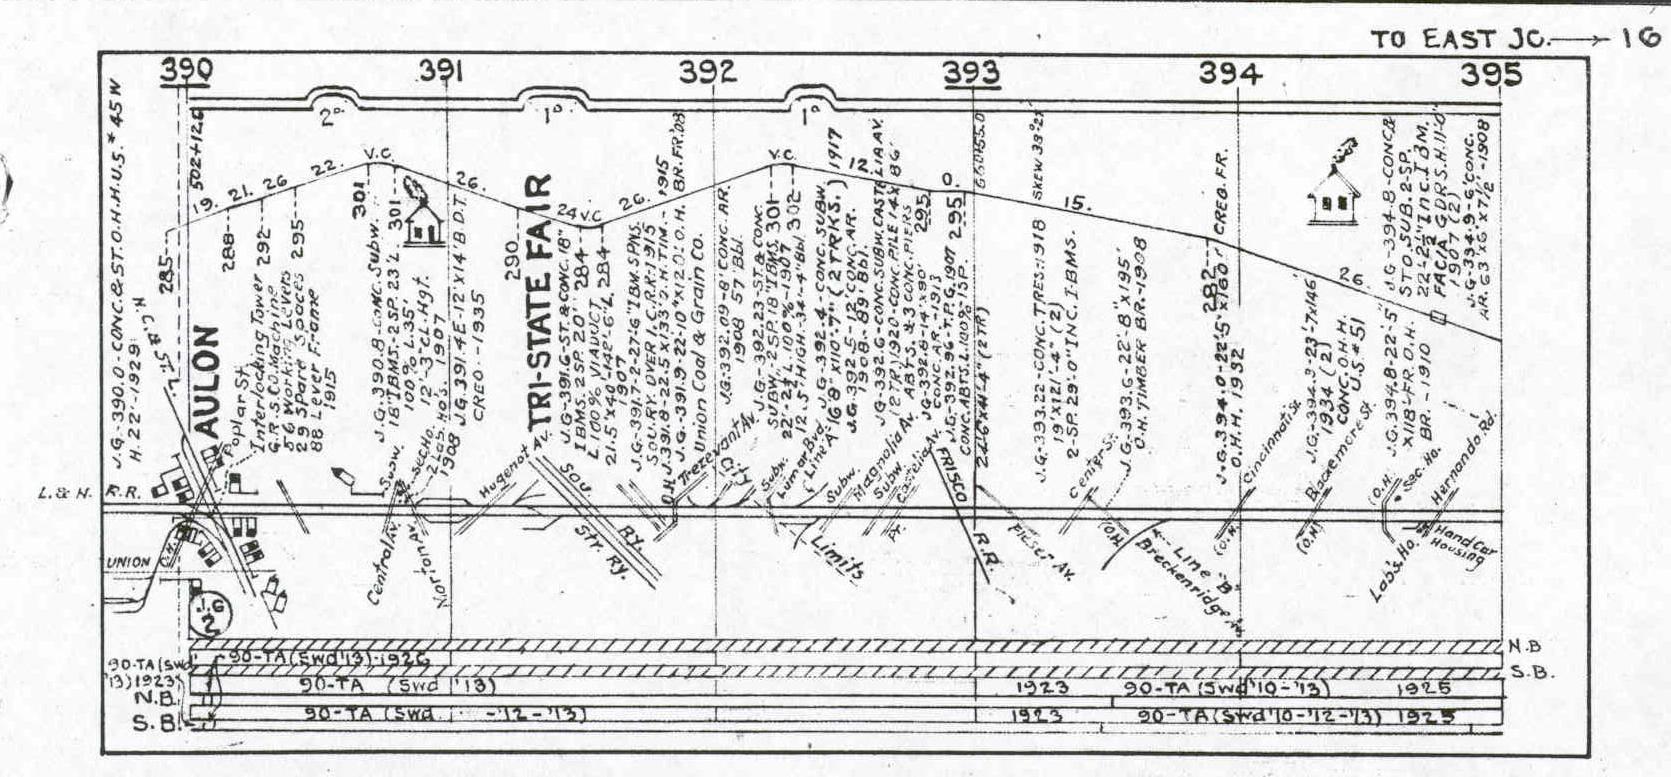 TO EAST JC. → 16
390 391 392 393 394 395
2° 1° 1°
J.G.-390.0-CONC.&ST.O.H.H.U.S.#45W
H.22'-1929
N.C.&ST.L.
502+12.6
285
19. 21. 26 22. V.C. 26. 24 V.C. 26. V.C. 12. 0. 15. 26.
288
292
295
301
301
290
284
284
301
302
295
295
282
AULON
Poplar St.
Interlocking Tower
G.R.S.CO.Machine
56 Working Levers
29 Spare Spaces
88 Lever Frame
1915
J.G-390.8-CONC.Subw.
18"IBMS.-2SP. 23'L
100% L.35"
12'-3"CL.Hgt.
1907
J.G.391.4E-12'X14'B.D.T.
CREO.-1935
Sec.Ho.
2-Lab.Ho's.
1908
TRI-STATE FAIR
J.G-391.6-ST.&CONC.18"
IBMS.2SP.20'
L.100% VIADUCT
21.5'x40'-142'-6"L
1907
J.G-391.7-2-27'-6"IBM.SPNS.
SOU.RY. OVER I.C.R.R.1915
J.391.8-22.5'X133'O.H.TIM.-1915
J.G.-391.9-22'-10"X120'L O.H. BR.FR.'08
Union Coal & Grain Co.
JG.392.09-8'CONC.AR.
1908 57'Bbl.
J.G.-392.23-ST.&CONC.
SUBW.-2SP.18"IBMS.
L.100%-1907
12.5'HIGH-34'-4"Bbl.
J.G-392.4-CONC.SUBW.
(16'8"X110'-7"(2TRKS.)1917
J.G-392.5-12'CONC.AR.
1908-89'8"Bbl.
J.G-392.6-CONC.SUBW.EASTELIA AV.
(2TR)1920-CONC.PILE 14'X86'
ABTS.&3 CONC.PIERS
J.G-392.8-14'X90'
CONC.AR.-1913
J.G-392.96-T.P.G.1907
CONC.ABTS.L.100%-15P.
24'-6"X41'-4"(2TR)
J.G.-393.22-CONC.TRES.1918 SKEW 33°
19'X121'.4" (2)
2-SP.29'0"INC.I.BMS.
J.G-393.6-22'-8"X195'
O.H.TIMBER BR.-1908
J.G.394.0-22'.5"X180' CREO.FR.
O.H.H. 1932
J.G.-394.3-23'-7"X146'
1934 (2)
CONC.O.H.H.
U.S.#51
J.G.394.8-22'.5"
X118'-FR.O.H.
BR.-1910
J.G-394.8-CONC.&
STO.SUB.2-SP.
22'-2½"Inc.I BM.
FACIA GDRS.H.11'-0"
1907 (2)
J.G-394.9-6'CONC.
AR.63'X6'X7½"-1908
L.& N. R.R.
UNION
Subw.
Central Av.
Norton Av.
Hugenot St.
SOU. RY.
Str. Ry.
O.H.
Trezevant Av.
City
Limits
Subw.
Lamar Blvd.
Line "A"
Subw.
Magnolia Av.
Subw.
Castelia Av.
FRISCO
R.R
Pieser Av.
Center St.
(O.H.)
Line "B"
Breckenridge
Cincinnati St.
(O.H.)
Blackmore St.
(O.H.)
(O.H.)
Sec. Ho.
Labs. Ho.
Hernando Rd.
Hand Car
Housing
J.G
2
N.B
S.B.
90-TA(Swd'13)-1926
90-TA(Swd
'13)1923
N.B. 90-TA (Swd '13) 1923 90-TA(Swd'10-'13) 1925
S.B. 90-TA (Swd -'12-'13) 1923 90-TA(Swd'10-'12-'13) 1925